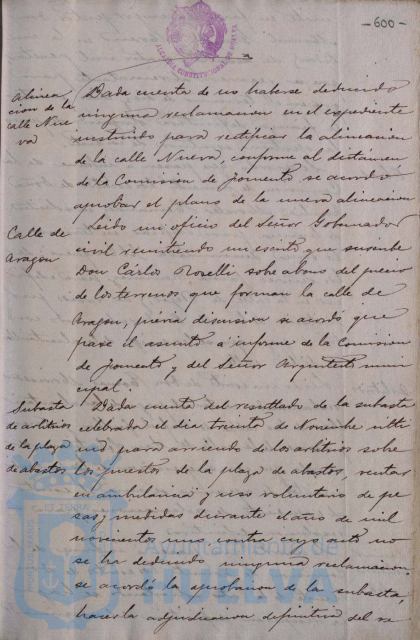 -600-
Alinea
cion de la
calle Nue
va
Dada cuenta de no haberse deducido
ninguna reclamacion en el expediente
instruido para rectificar la alineacion
de la calle Nueva, conforme al dictámen
de la Comision de Fomento se acordó
aprobar el plano de la nueva alineacion
Calle de
Aragon
Leido un oficio del Señor Gobernador
civil remitiendo un escrito que suscribe
Don Cárlos Roselli sobre abono del precio
de los terrenos que forman la calle de
Aragon, prévia discusion se acordó que
pase el asunto á informe de la Comision
de Fomento y del Señor Arquitecto muni
cipal.
Subasta
de arbitrios
de la plaza
de abastos
Dada cuenta del resultado de la subasta
celebrada el dia treinta de Noviembre ulti
mo para arriendo de los arbitrios sobre
los puestos de la plaza de abastos, ventas
en ambulancia y uso voluntario de pe
sas y medidas durante el año de mil
novecientos uno, contra cuyo acto no
se ha deducido ninguna reclamacion
se acordó la aprobacion de la subasta,
hacer la adjudicacion definitiva del re
Ayuntamiento de
HUELVA